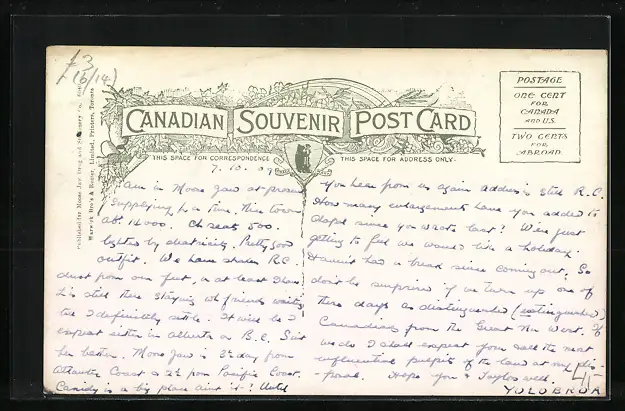 £3
(6/14)
Published for Moose Jaw Drug and Stationery Co.
Warwick Bro's & Rutter, Limited, Printers, Toronto
CANADIAN SOUVENIR POST CARD
THIS SPACE FOR CORRESPONDENCE
THIS SPACE FOR ADDRESS ONLY.
POSTAGE
ONE CENT
FOR
CANADA
AND U.S.
TWO CENTS
FOR
ABROAD.
7. 10. 09
Am in Moose Jaw at present
supplying for a time. This town
abt. 14000. Ch seats 500.
lighted by electricity. Pretty good
outfit. We have shaken R.C.
dust from our feet, or at least I have
is still there staying wh friends waiting
till I definitely settle. It will be I
expect either in Alberta or B.C. Suit
her better. Moose Jaw is 3½ day from
Atlantic Coast & 2½ from Pacific Coast.
Canidy is a big place aint it! Until
you hear from us again address is still R.C.
How many enlargements have you added to
chapel since you wrote last? We're just
getting to feel we would like a holiday.
Haven't had a break since coming out. So
don't be surprised if we turn up one of
these days as distinguished (extinguished)
Canadians from the Great Nor West. If
we do I shall expect you call the most
influential pulpits of the land at my dis-
-posal. Hope you & Taylors well.
4/-
YOLOBRUA